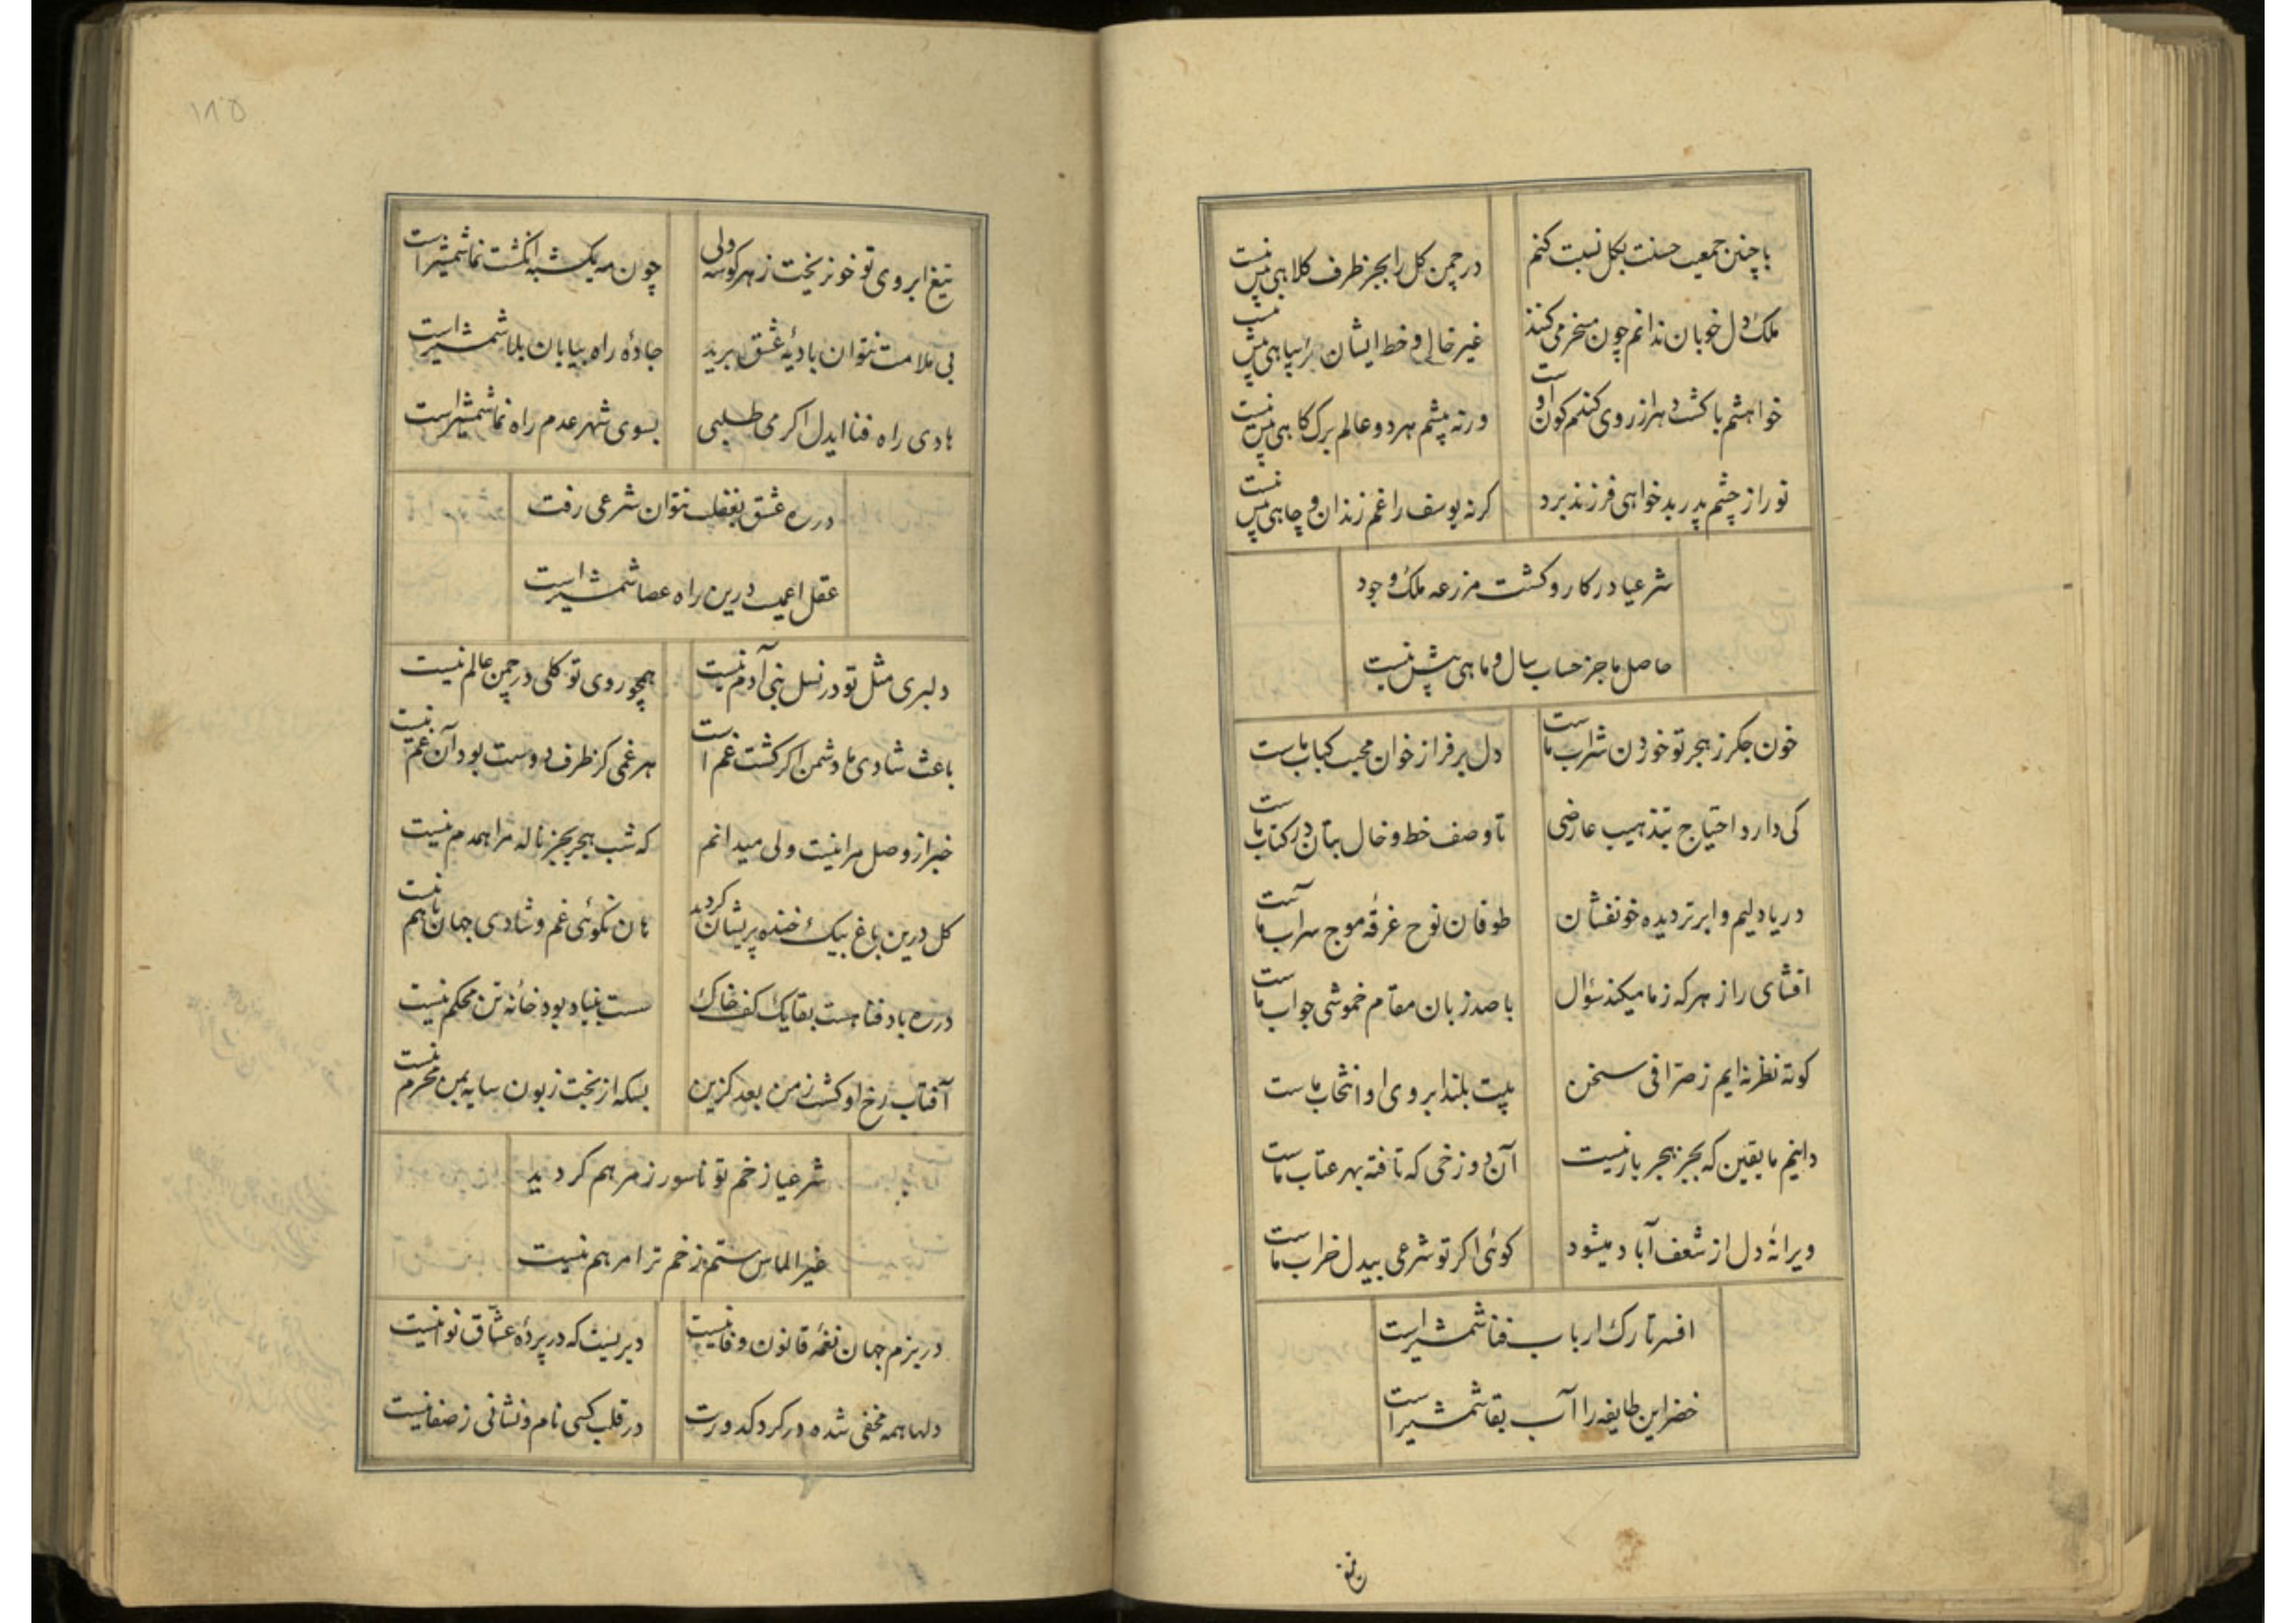 با چنین جمعیت حسنت بکل نسبت کنم
در چمن کل را بجز ظرف کلاهی بیش نیست
ملک دل خوبان ندانم چون مسخر می کنند
غیر خال و خط ایشان را سپاهی بیش نیست
خواهشم باکشت و هر از روی کندم کون اوست
ورنه پیشم هر دو عالم برک کاهی بیش نیست
نور از چشم پدر بدخواهی فرزند برد
کرنه یوسف را غم زندان و چاهی بیش نیست
شرعیا در کار و کشت مزرعه ملک وجود
حاصل ما جز حساب سال و ماهی بیش نیست
خون جکر ز هجر تو خوردن شراب ماست
دل بر فراز خوان محبت کباب ماست
کی دارد احتیاج بتذهیب عارضی
تا وصف خط و خال بتان در کتاب ماست
دریا دلیم و ابر تر دیده خونفشان
طوفان نوح غرقهٔ موج سراب ماست
افشای راز هر که ز ما میکند سؤال
با صد زبان مقام خموشی جواب ماست
کوته نظر نه ایم ز صرافی سخن
بیت بلند ابروی او انتخاب ماست
دانیم ما یقین که بجز هجر یار نیست
آن دوزخی که تافته بهر عتاب ماست
ویرانهٔ دل از شعف آباد میشود
کوئی اکر تو شرعی بیدل خراب ماست
افسر تارک ارباب فنا شمشیر است
خضر این طایفه را آب بقا شمشیر است
تیغ
۱۸۵
تیغ ابروی تو خون ریخت ز هر کوشه ولی
چون مه یکشبه انکشت نما شمشیر است
بی ملامت نتوان بادیهٔ عشق برید
جادهٔ راه بیابان بلا شمشیر است
هادی راه فنا ایدل اکر می طلبی
بسوی شهر عدم راه نما شمشیر است
در ره عشق بغفلت نتوان شرعی رفت
عقل اعمیست درین راه عصا شمشیر است
دلبری مثل تو در نسل بنی آدم نیست
همچو روی تو کلی در چمن عالم نیست
باعث شادی ما دشمن اکر کشت غم است
هر غمی کز طرف دوست بود آن غم نیست
خبر از وصل مرا نیست ولی میدانم
که شب هجر بجز ناله مرا همدم نیست
کل درین باغ بیک خنده پریشان کردید
هان نکوئی غم و شادی جهان باهم نیست
در ره باد فنا هست بقا یک کف خاک
سست بنیاد بود خانه تن محکم نیست
آفتاب رخ او کشت ز من بعد کزین
بسکه از بخت زبون سایه بمن محرم نیست
شرعیا زخم تو ناسور ز مرهم کردید
غیر الماس ستم زخم ترا مرهم نیست
در بزم جهان نغمهٔ قانون وفا نیست
دیریست که در پردهٔ عشّاق نوا نیست
دلها همه مخفی شده در کرد کدورت
در قلب کسی نام و نشانی ز صفا نیست